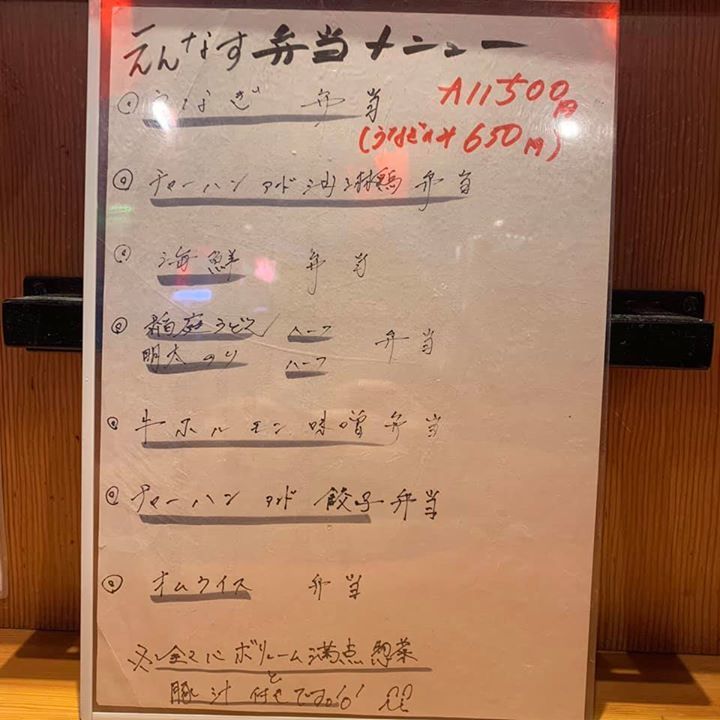 えんなす弁当メニュー
All 500円
(うなぎのみ 650円)
◎ うなぎ 弁当
◎ チャーハン アンド 油淋鶏 弁当
◎ 海鮮 弁当
◎ 稲庭うどん ハーフ 弁当
明太のり ハーフ
◎ 牛ホルモン味噌弁当
◎ チャーハン アンド 餃子弁当
◎ オムライス 弁当
※全てにボリューム満点惣菜
と
豚汁 付きです